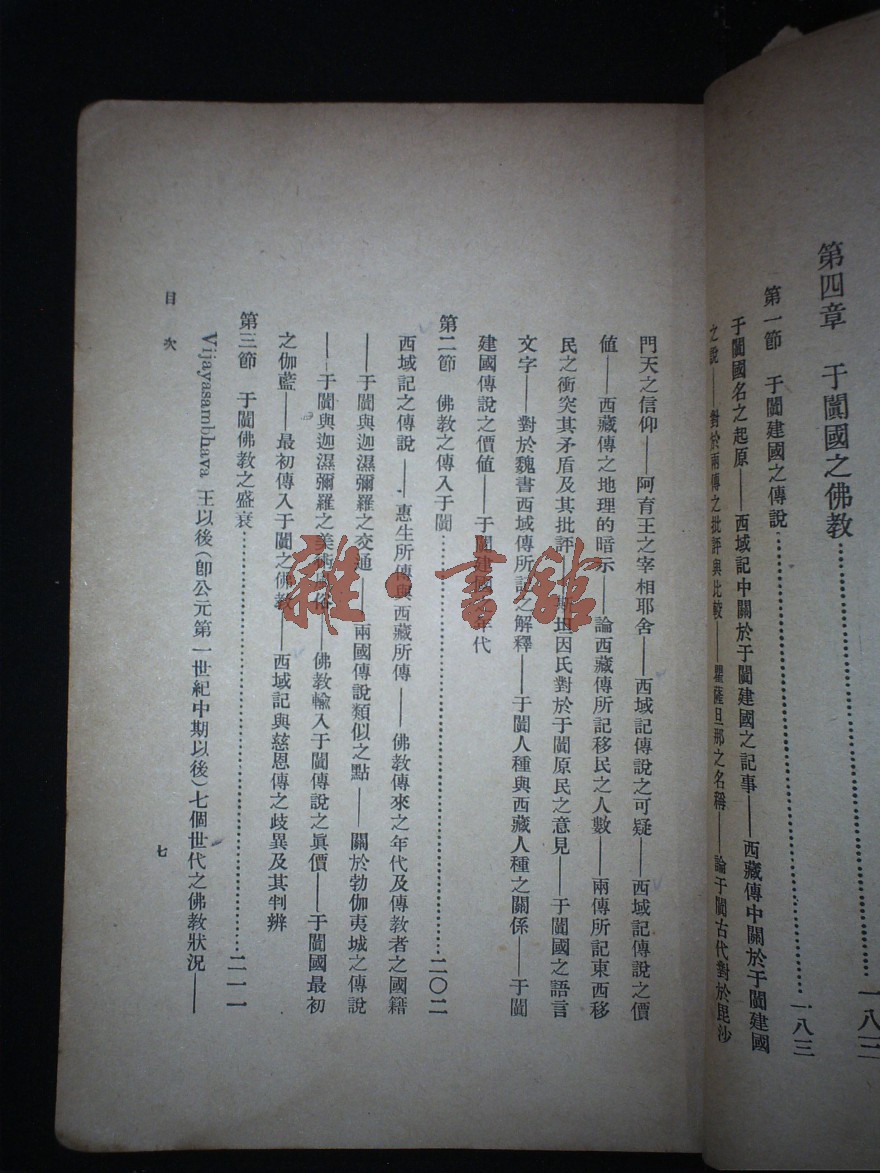 第四章 于闐國之佛教…………一八三
第一節 于闐建國之傳說…………一八三
于闐國名之起原——西域記中關於于闐建國之記事——西藏傳中關於于闐建國
之說——對於兩傳之批評與比較——瞿薩旦那之名稱——論于闐古代對於毘沙
門天之信仰——阿育王之宰相耶舍——西域記傳說之可疑——西域記傳說之價
值——西藏傳之地理的暗示——論西藏傳所記移民之人數——兩傳所記東西移
民之衝突其矛盾及其批評——坦因氏對於于闐原民之意見——于闐國之語言
文字——對於魏書西域傳所記之解釋——于闐人種與西藏人種之關係——于闐
建國傳說之價值——于闐建國之年代
第二節 佛教之傳入于闐…………二〇二
西域記之傳說——惠生所傳與西藏所傳——佛教傳來之年代及傳教者之國籍
——于闐與迦濕彌羅之交通——兩國傳說類似之點——關於勃伽夷城之傳說
——于闐與迦濕彌羅之美術風俗——佛教輸入于闐傳說之眞價——于闐國最初
之伽藍——最初傳入于闐之佛教——西域記與慈恩傳之歧異及其判辨
第三節 于闐佛教之盛衰…………二一一
Vijayasambhava 王以後(卽公元第一世紀中期以後)七個世代之佛教狀況——
目次
七
雜·書館